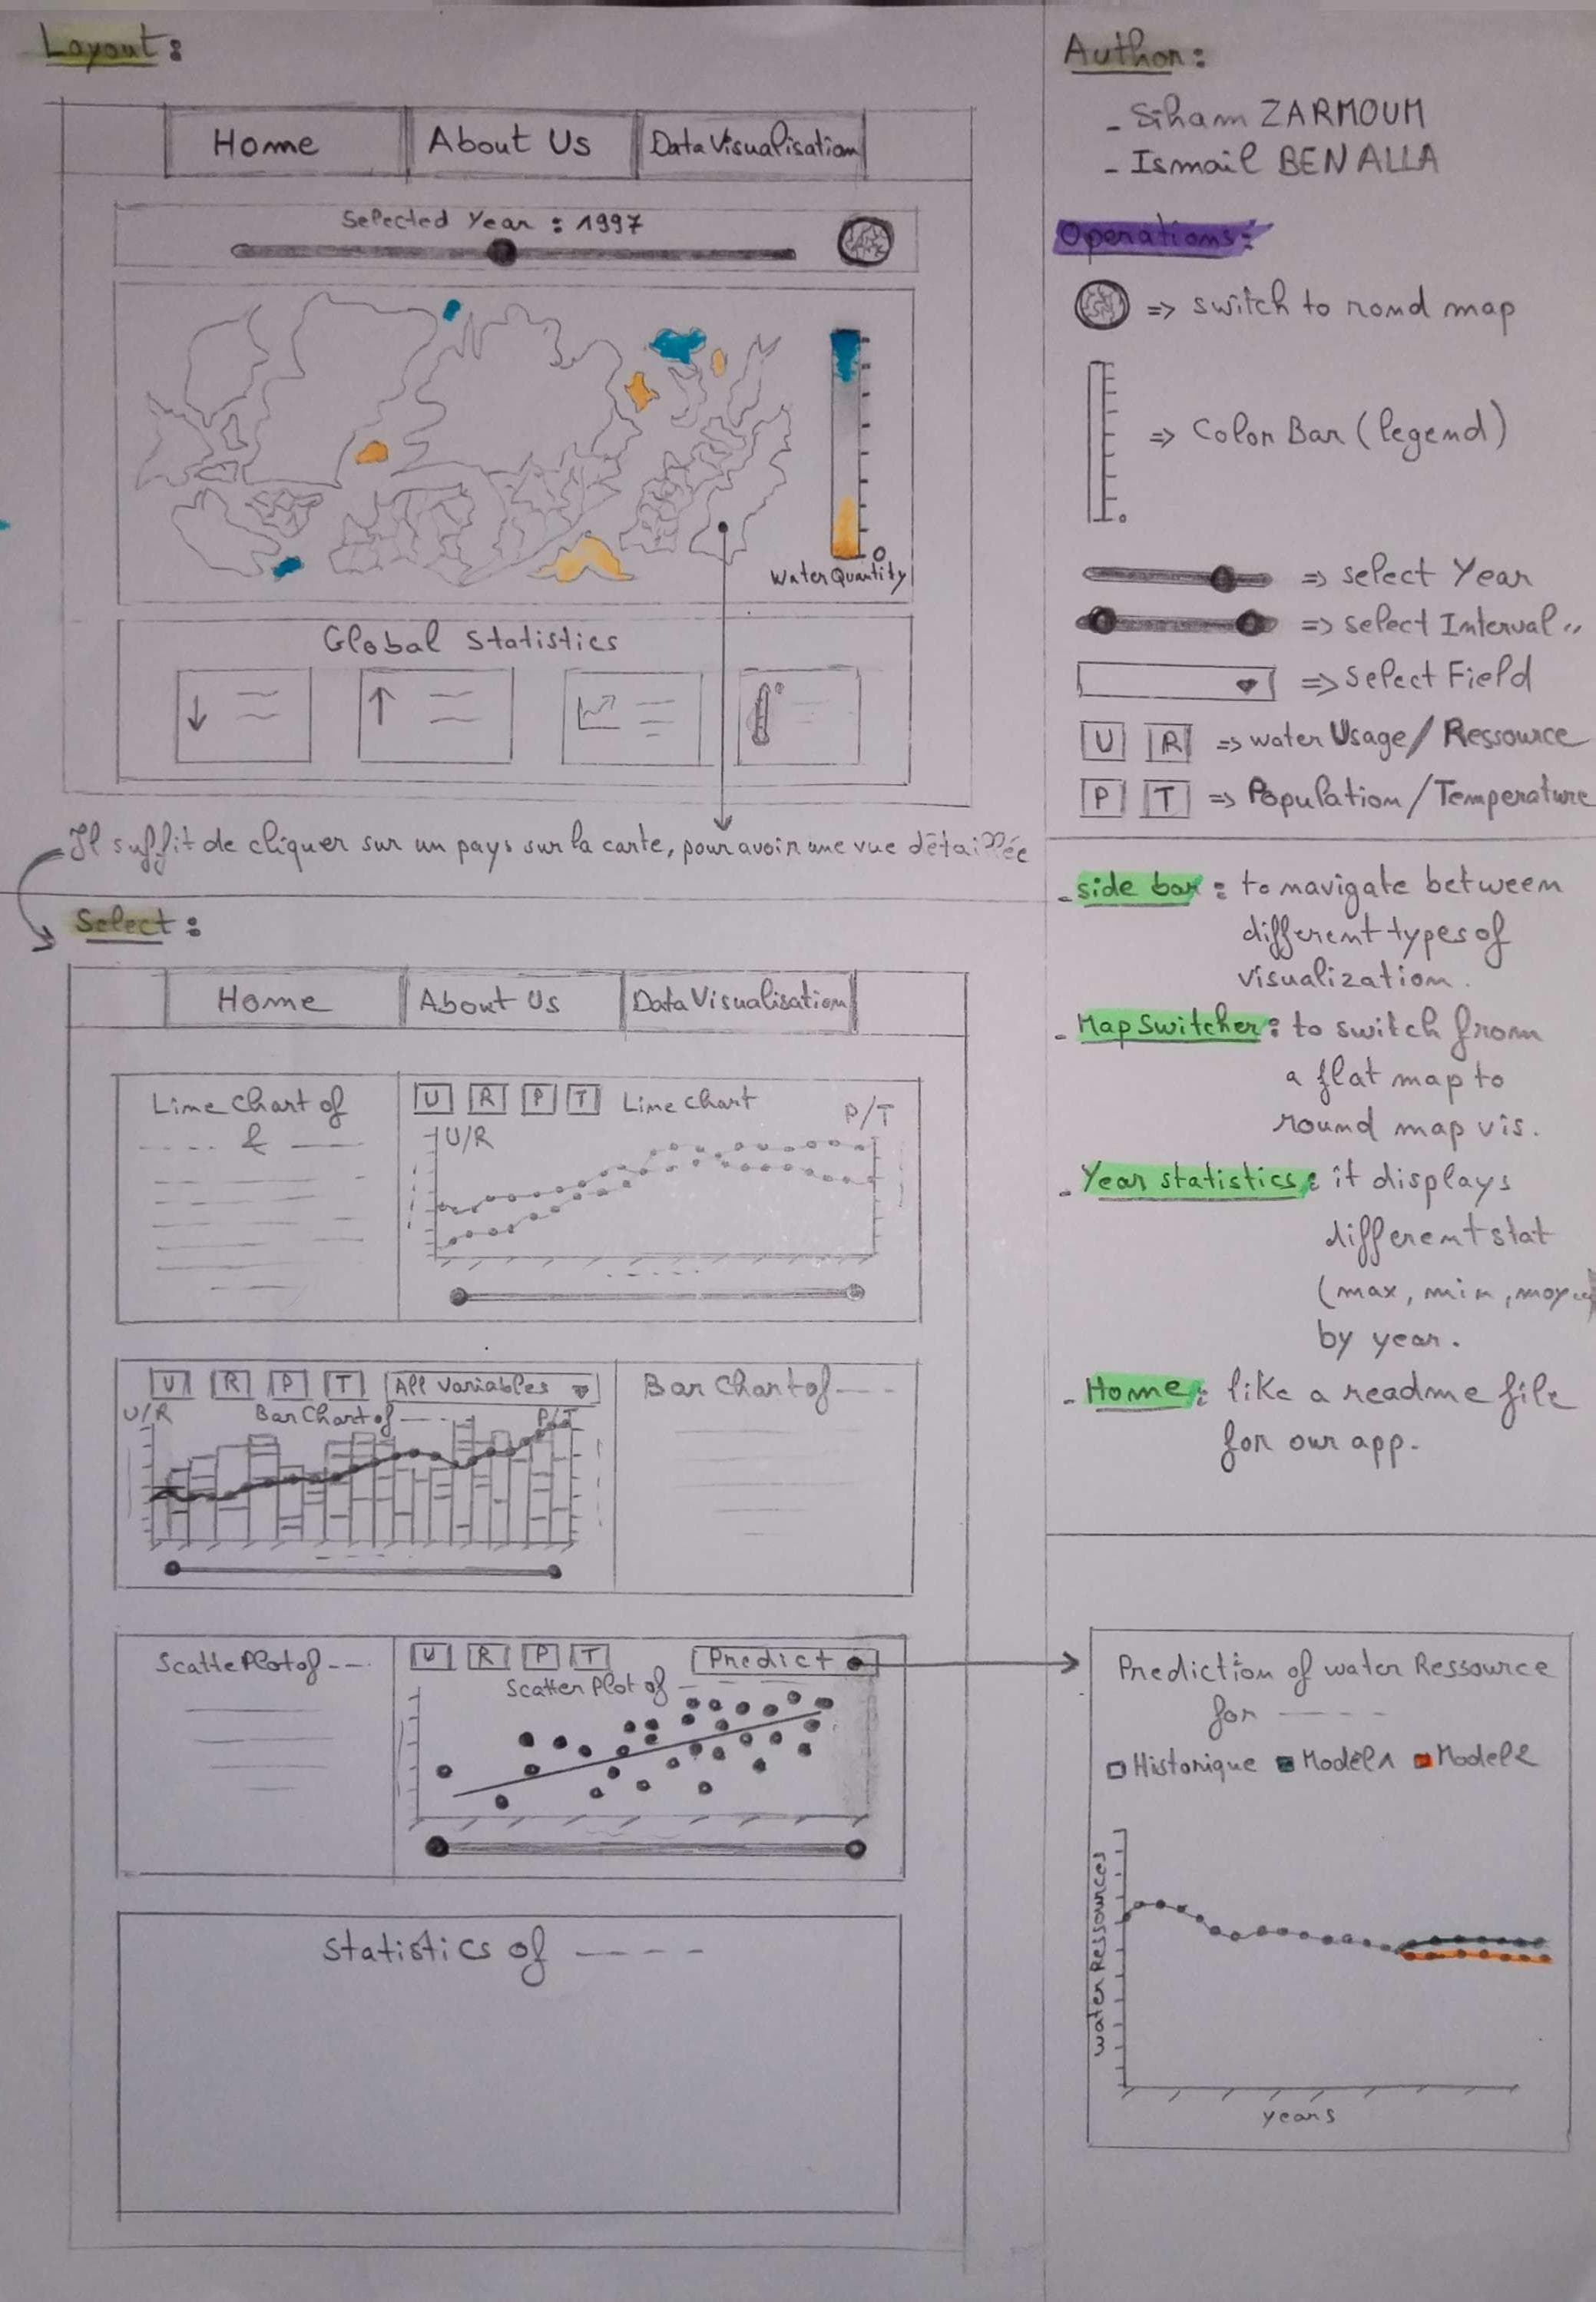 Layout :
Home
About Us
Data Visualisation
Selected Year : 1997
0
Water Quantity
Global Statistics
Il suffit de cliquer sur un pays sur la carte, pour avoir une vue détaillée
Select :
Home
About Us
Data Visualisation
Line chart of
---- & ----
U R P T Line chart
U/R
P/T
U R P T All variables
U/R
Bar Chart of ----
P/T
Bar Chart of ---
Scatte Plot of ---
U R P T Predict
Scatter Plot of
Statistics of -----
Author :
- Siham ZARMOUM
- Ismail BENALLA
Operations :
=> switch to rond map
=> Color Bar (legend)
=> select Year
=> select Interval "
=> Select Field
U R => water Usage / Ressource
P T => Population / Temperature
- side bar : to navigate between
different types of
visualization.
- Map Switcher : to switch from
a flat map to
round map vis.
- Year statistics : it displays
different stat
(max, min, moy...
by year.
- Home : like a readme file
for our app.
Prediction of water Ressource
for ----
Historique Model1 Model2
water Ressources
years